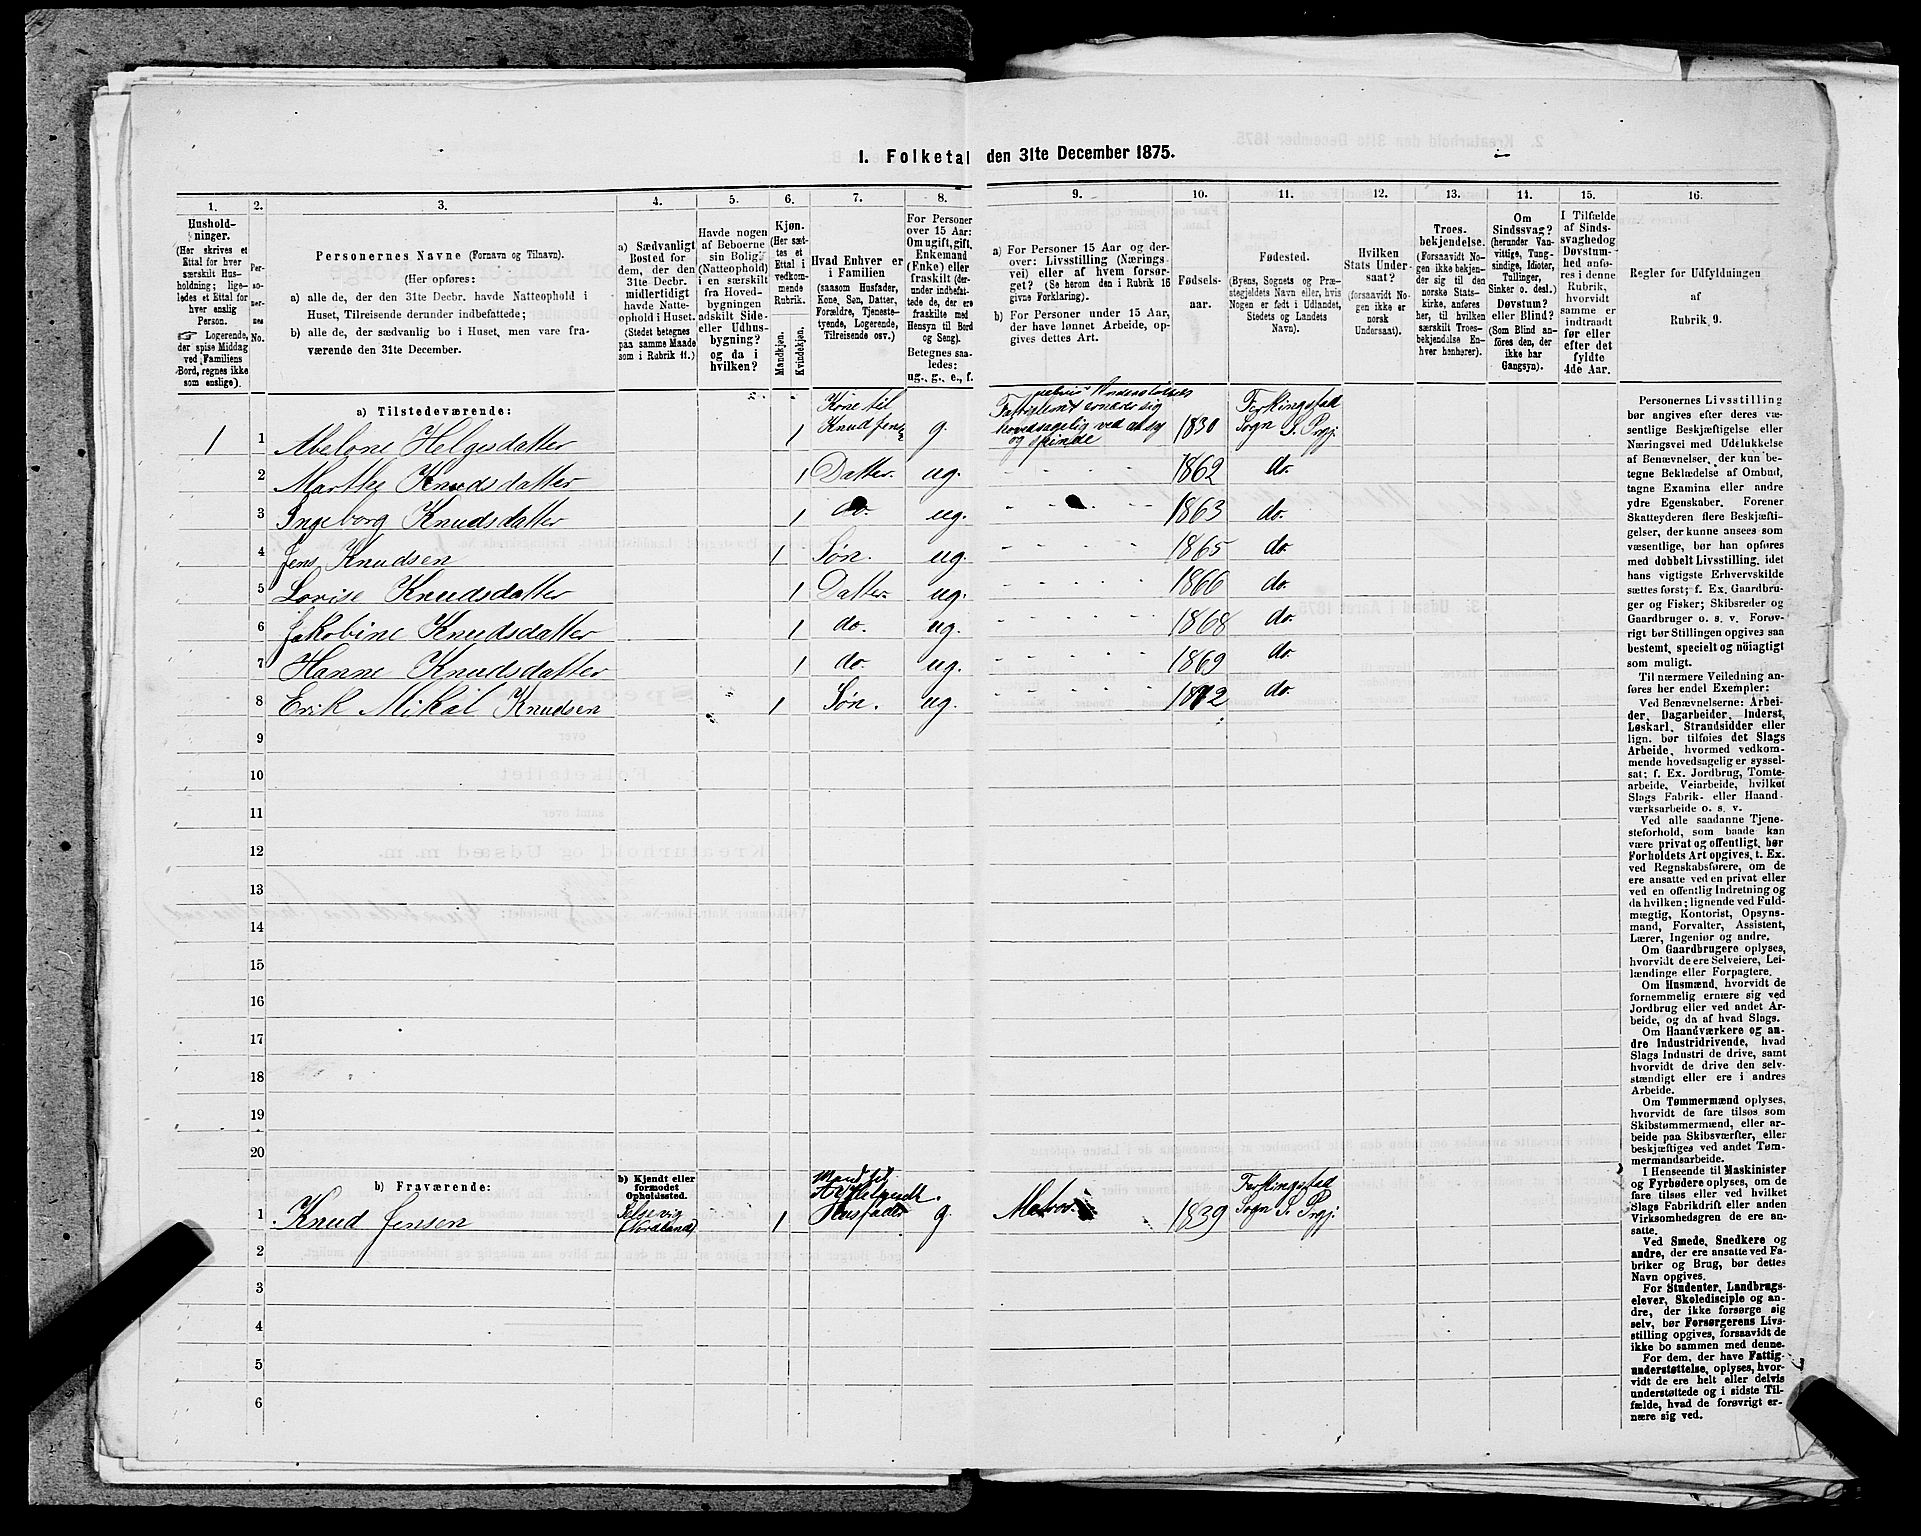 1. Folketal den 31te December 1875.
1.
2.
3.
4.
5.
6.
7.
8.
9.
10.
11.
12.
13.
14.
15.
16.
Hushold-
ninger.
(Her skrives et
Ettal for hver
særskilt Hus-
holdning; lige-
ledes et Ettal for
hver enslig
Person.
☞ Logerende,
der spise Middag
ved Familiens
Bord, regnes ikke
som enslige).
Per-
so-
ner-
nes
No.
Personernes Navne (Fornavn og Tilnavn).
(Her opføres:
a) alle de, der den 31te Decbr. havde Natteophold i
Huset, Tilreisende derunder indbefattede;
b) alle de, der sædvanlig bo i Huset, men vare fra-
værende den 31te December.
a) Sædvanligt
Bosted for
dem, der den
31te Decbr.
midlertidigt
havde Natte-
ophold i Huset.
(Stedet betegnes
paa samme Maade
som i Rubrik 11.)
Havde nogen
af Beboerne
sin Bolig
(Natteophold)
i en særskilt
fra Hoved-
bygningen
adskilt Side-
eller Udhus-
bygning?
og da i
hvilken?
Kjøn.
(Her sæt-
tes et
Ettal i
vedkom-
mende
Rubrik.
Mandkjøn.
Kvindekjøn.
Hvad Enhver er
i Familien
(saasom Husfader,
Kone, Søn, Datter,
Forældre, Tjeneste-
tyende, Logerende,
Tilreisende osv.)
For Personer
over 15 Aar:
Om ugift, gift,
Enkemand
(Enke) eller
fraskilt (der-
under indbefat-
tede de, der ere
fraskilte med
Hensyn til Bord
og Seng).
Betegnes saa-
ledes:
ug., g., e., f.
a) For Personer 15 Aar og der-
over: Livsstilling (Nærings-
vei) eller af hvem forsør-
get? (Se herom den i Rubrik 16
givne Forklaring).
b) For Personer under 15 Aar,
der have lønnet Arbeide, op-
gives dettes Art.
Fødsels-
aar.
Fødested.
(Byens, Sognets og Præ-
stegjeldets Navn eller, hvis
Nogen er født i Udlandet,
Stedets og Landets
Navn).
Hvilken
Stats Under-
saat?
(forsaavidt No-
gen ikke er
norsk
Undersaat).
Troes-
bekjendelse.
(Forsaavidt No-
gen ikke bekjen-
der sig til den
norske Stats-
kirke, anføres
her, til hvilken
særskilt Troes-
bekjendelse En-
hver henhører).
Om
Sindssvag?
(herunder Van-
vittige, Tung-
sindige, Idioter,
Tullinger,
Sinker o. desl.)
Døvstum?
eller Blind?
(Som Blind an-
føres den, der
ikke har
Gangsyn).
I Tilfælde
af Sinds-
svaghed og
Døvstum-
hed anfø-
res i denne
Rubrik,
hvorvidt
samme er
indtraadt
før eller
efter det
fyldte
4de Aar.
Regler for Udfyldningen
af
Rubrik 9.
a) Tilstedeværende:
1 1 Abelone Helgesdatter 1 Kone til Knud Jens g. Fattiglemt ernærer sig hovedsagelig ved at sy og spinde 1830 Ferkingstad Sogn S. Prgj.
2 Marthe Knudsdatter 1 Datter. ug. - - - - - 1862 do.
3 Ingeborg Knudsdatter 1 do. ug. - - - - 1863 do.
4 Jens Knudsen 1 Søn. ug. - - - - - 1865 do.
5 Lovise Knudsdatter 1 Datter. ug. - - - - - 1866 do.
6 Jakobine Knudsdatter 1 do. ug. - - - - - 1868 do.
7 Hanne Knudsdatter 1 do. ug. - - - - - 1869 do.
8 Erik Mikal Knudsen 1 Søn. ug. 1872 do.
9
10
11
12
13
14
15
16
17
18
19
20
b) Fraværende:
b) Kjendt eller
formodet
Opholdssted.
1 Knud Jensen (Nordland) 1 Mand til Husfader g. Matros 1839 Ferkingstad Sogn S. Prgj.
2
3
4
5
6
Personernes Livsstilling
bør angives efter deres væ-
sentlige Beskjæftigelse eller
Næringsvei med Udelukkelse
af Benævnelser, der kun be-
tegne Beklædelse af Ombud,
tagne Examina eller andre
ydre Egenskaber. Forener
Skatteyderen flere Beskjæfti-
gelser, der kunne ansees som
væsentlige, bør han opføres
med dobbelt Livsstilling, idet
hans vigtigste Erhvervskilde
sættes først; f. Ex. Gaardbru-
ger og Fisker; Skibsreder og
Gaardbruger o. s. v. Forøv-
rigt bør Stillingen opgives saa
bestemt, specielt og nøiagtigt
som muligt.
Til nærmere Veiledning an-
føres her endel Exempler:
Ved Benævnelserne: Arbei-
der, Dagarbeider, Inderst,
Løskarl, Strandsidder eller
lign. bør tilføies det Slags
Arbeide, hvormed vedkom-
mende hovedsagelig er syssel-
sat; f. Ex. Jordbrug, Tomte-
arbeide, Veiarbeide, hvilket
Slags Fabrik- eller Haand-
værksarbeide o. s. v.
Ved alle saadanne Tjene-
steforhold, som baade kan
være privat og offentligt, bør
Forholdets Art opgives, t. Ex.
ved Regnskabsførere, om de
ere ansatte ved en privat eller
ved en offentlig Indretning og
da hvilken; lignende ved Fuld-
mægtig, Kontorist, Opsyns-
mand, Forvalter, Assistent,
Lærer, Ingeniør og andre.
Om Gaardbrugere oplyses,
hvorvidt de ere Selveiere, Lei-
lændinge eller Forpagtere.
Om Husmænd, hvorvidt de
fornemmelig ernære sig ved
Jordbrug eller ved andet Ar-
beide, og da af hvad Slags.
Om Haandværkere og an-
dre Industridrivende, hvad
Slags Industri de drive, samt
hvorvidt de drive den selv-
stændigt eller ere i andres
Arbeide.
Om Tømmermænd oplyses,
hvorvidt de fare tilsøs som
Skibstømmermænd, eller ar-
beide paa Skibsværfter, eller
beskjæftiges ved andet Tøm-
mermandsarbeide.
I Henseende til Maskinister
og Fyrbødere oplyses, om de
fare tilsøs eller ved hvilket
Slags Fabrikdrift eller anden
Virksomhedsgren de ere an-
satte.
Ved Smede, Snedkere og
andre, der ere ansatte ved Fa-
briker og Brug, bør dettes
Navn opgives.
For Studenter, Landbrugs-
elever, Skoledisciple og an-
dre, der ikke forsørge sig
selv, bør Forsørgerens Livs-
stilling opgives, forsaavidt de
ikke bo sammen med denne.
For dem, der have Fattig-
understøttelse, oplyses, hvor-
vidt de ere helt eller delvis
understøttede og i sidste Til-
fælde, hvad de forøvrigt er-
nære sig ved.